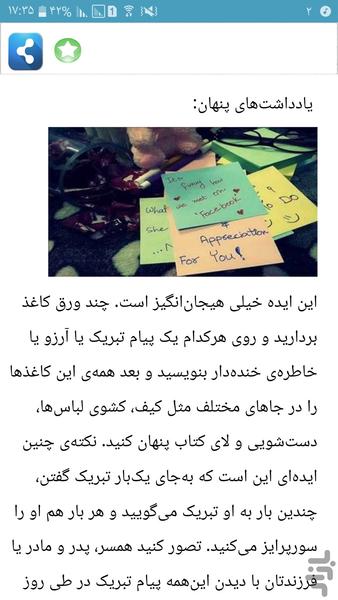 ۱۷:۳۵ ۴۲% 1 ۲
یادداشت‌های پنهان:
It's
funny how
we met on
"Facebook
What
She
...N
Appreciation
For You!
Do
این ایده خیلی هیجان‌انگیز است. چند ورق کاغذ
بردارید و روی هرکدام یک پیام تبریک یا آرزو یا
خاطره‌ی خنده‌دار بنویسید و بعد همه‌ی این کاغذها
را در جاهای مختلف مثل کیف، کشوی لباس‌ها،
دست‌شویی و لای کتاب پنهان کنید. نکته‌ی چنین
ایده‌ای این است که به‌جای یک‌بار تبریک گفتن،
چندین بار به او تبریک می‌گویید و هر بار هم او را
سورپرایز می‌کنید. تصور کنید همسر، پدر و مادر یا
فرزندتان با دیدن این‌همه پیام تبریک در طی روز
بازار